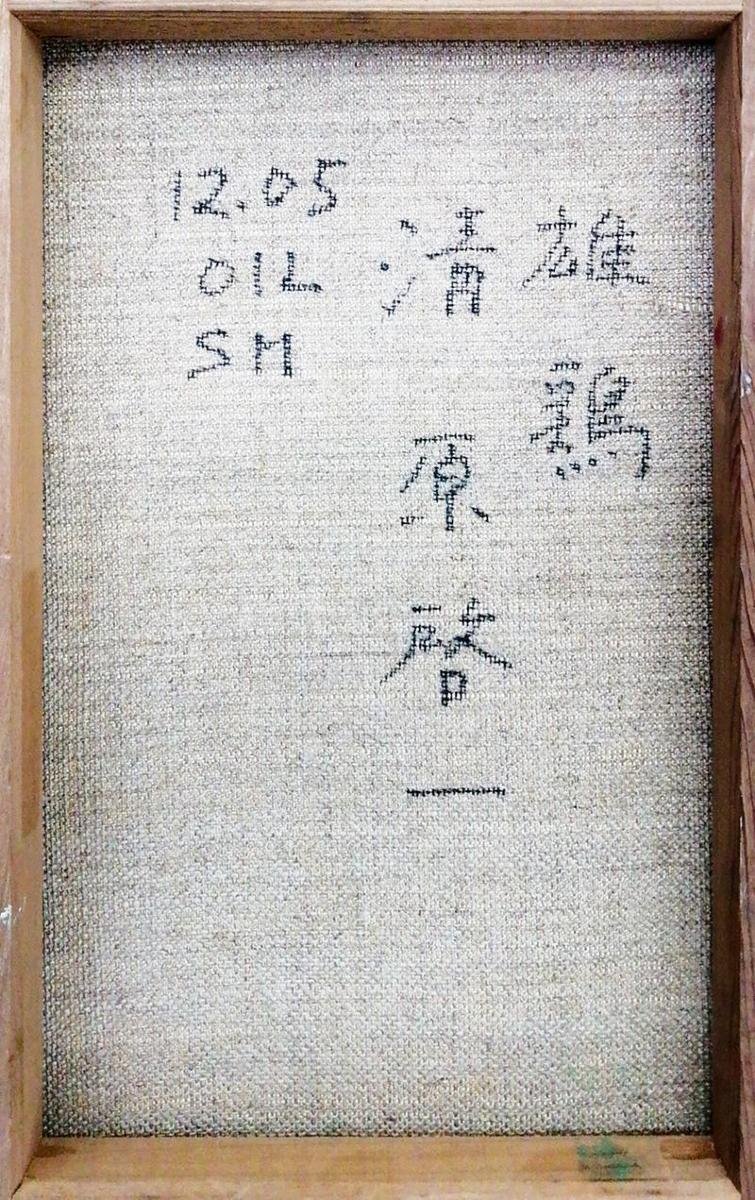 雄鶏
清原啓一
12.05
OIL
SM